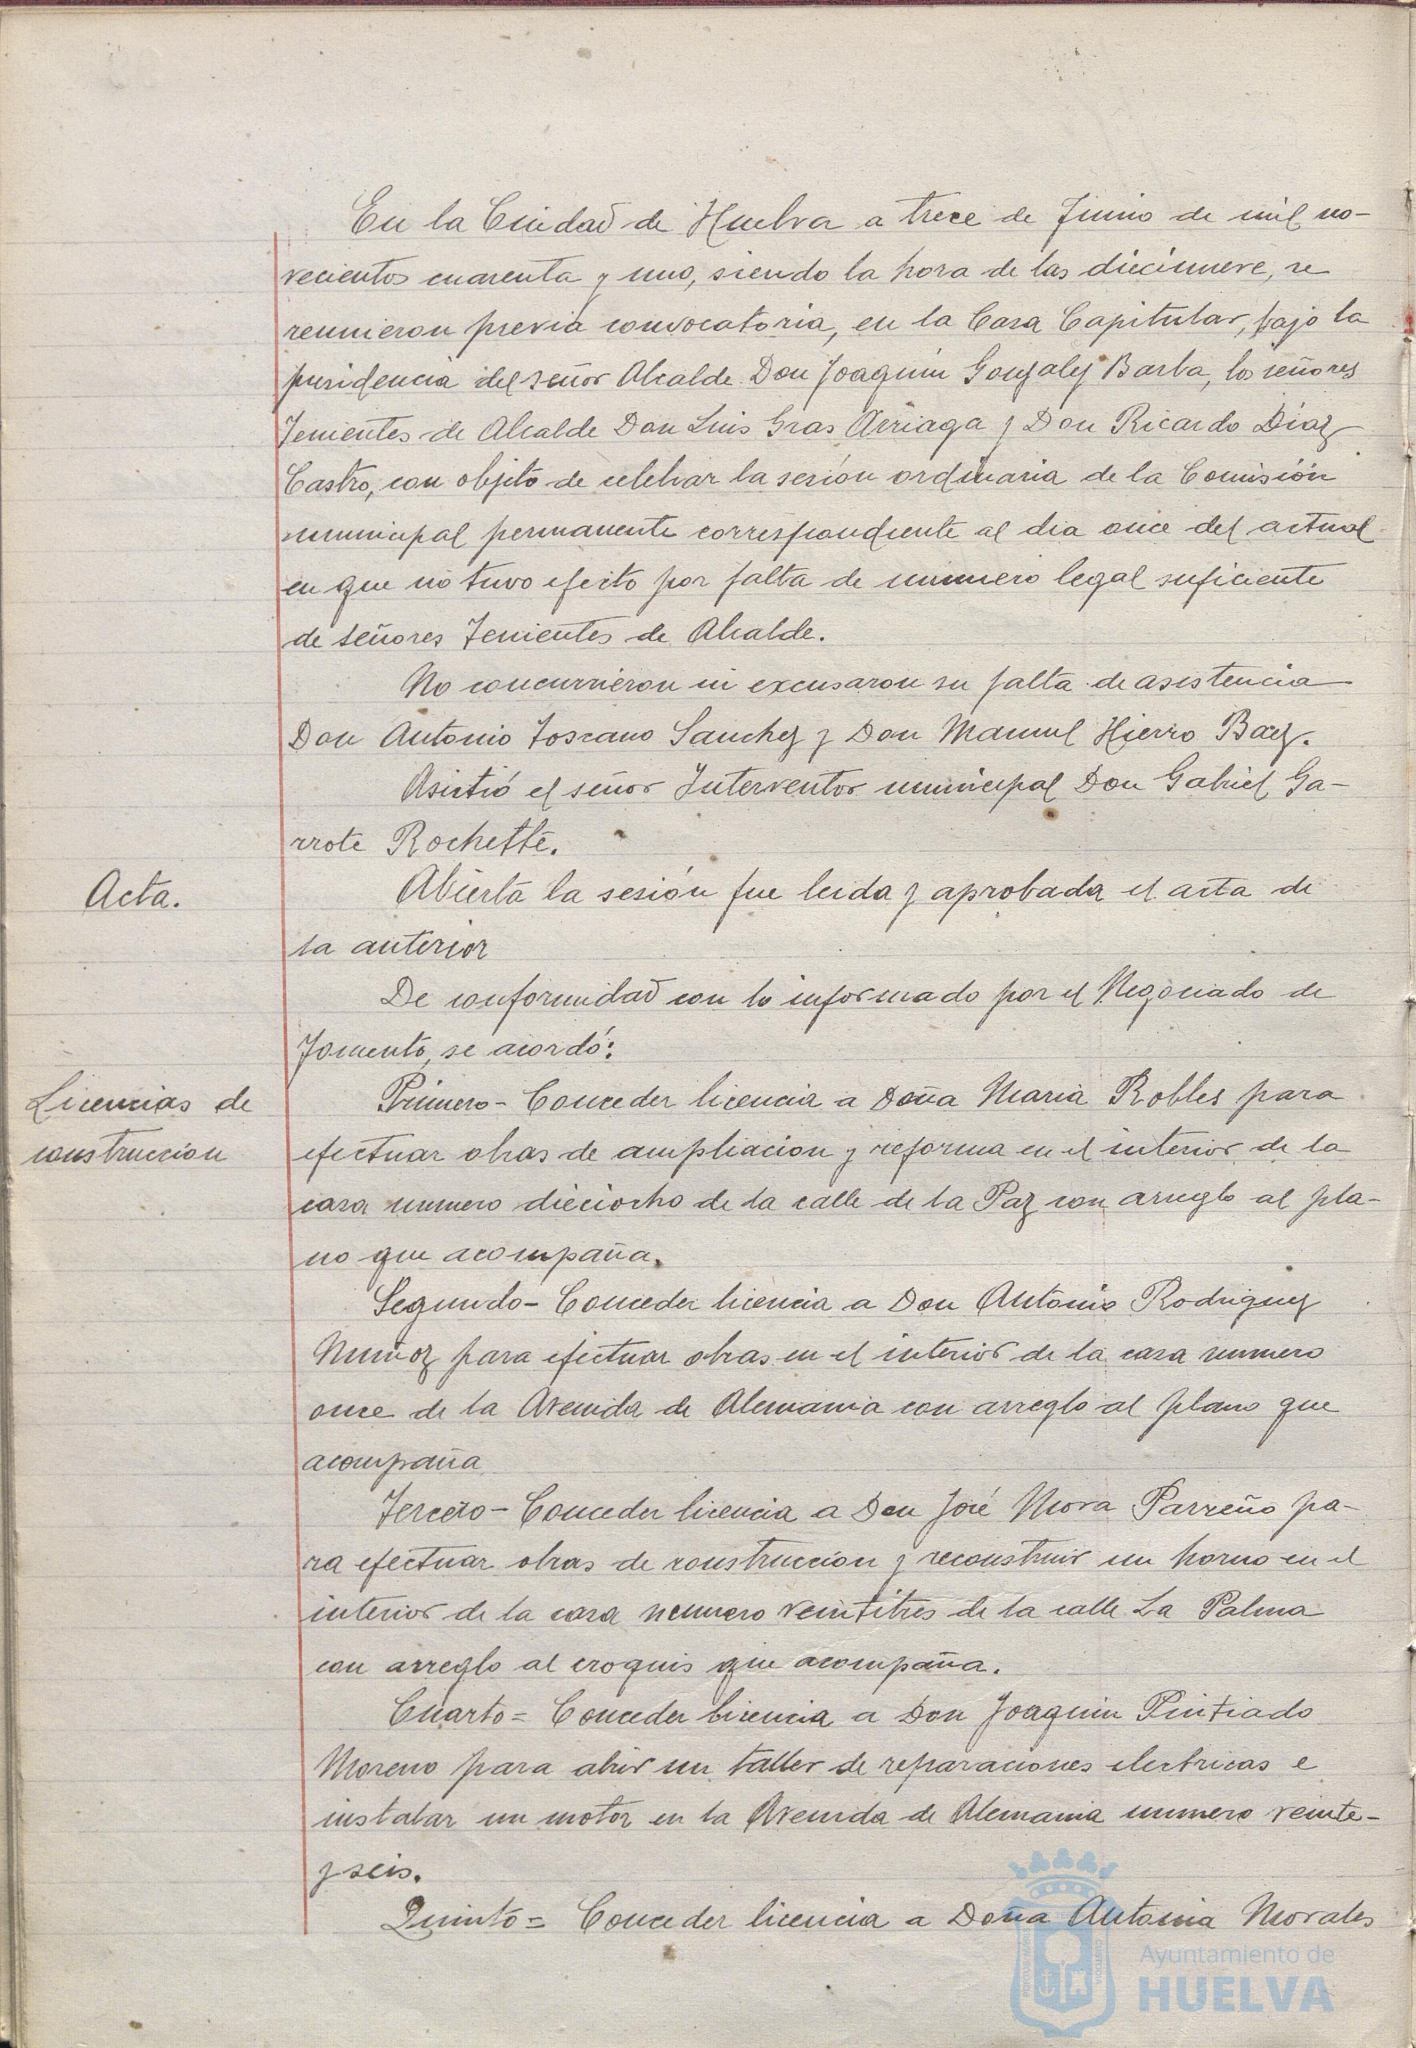 En la Ciudad de Huelva a trece de Junio de mil no-
vecientos cuarenta y uno, siendo la hora de las diecinueve, se
reunieron previa convocatoria, en la Casa Capitular, bajo la
presidencia del señor Alcalde Don Joaquin Gonzalez Barba, los señores
Tenientes de Alcalde Don Luis Gras Arriaga y Don Ricardo Diaz
Castro, con objeto de celebrar la sesión ordinaria de la Comisión
municipal permanente correspondiente al dia once del actual
en que no tuvo efecto por falta de numero legal suficiente
de señores Tenientes de Alcalde.
No concurrieron ni excusaron su falta de asistencia
Don Antonio Toscano Sanchez y Don Manuel Hierro Baez.
Asistió el señor Interventor municipal Don Gabriel Ga-
rrote Rochette.
Acta.
Abierta la sesión fue leida y aprobada el acta de
la anterior
De conformidad con lo informado por el Negociado de
Fomento, se acordó:
Licencias de
construccion
Primero- Conceder licencia a Doña Maria Robles para
efectuar obras de ampliacion y reforma en el interior de la
casa numero dieciocho de la calle de la Paz con arreglo al pla-
no que acompaña.
Segundo- Conceder licencia a Don Antonio Rodriguez
Muñoz para efectuar obras en el interior de la casa numero
once de la Avenida de Alemania con arreglo al plano que
acompaña
Tercero- Conceder licencia a Don José Mora Parreño pa-
ra efectuar obras de construccion y reconstruir un horno en el
interior de la casa numero veintitres de la calle La Palma
con arreglo al croquis que acompaña.
Cuarto= Conceder licencia a Don Joaquin Pintiado
Moreno para abrir un taller de reparaciones electricas e
instalar un motor en la Avenida de Alemania numero veinte-
y seis.
Quinto= Conceder licencia a Doña Antonia Morales
Ayuntamiento de
HUELVA